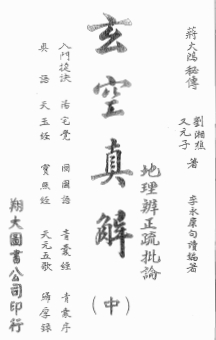 蔣大鴻秘傳
劉湘糎 著
又元子
李永康句讀編著
玄空真解
地理辨正疏批論
（中）
入門捷訣 陽宅覺 國國語 青囊經 青囊序
奧語 天玉經 寶照經 天元五歌 歸厚錄
翔大圖書公司印行